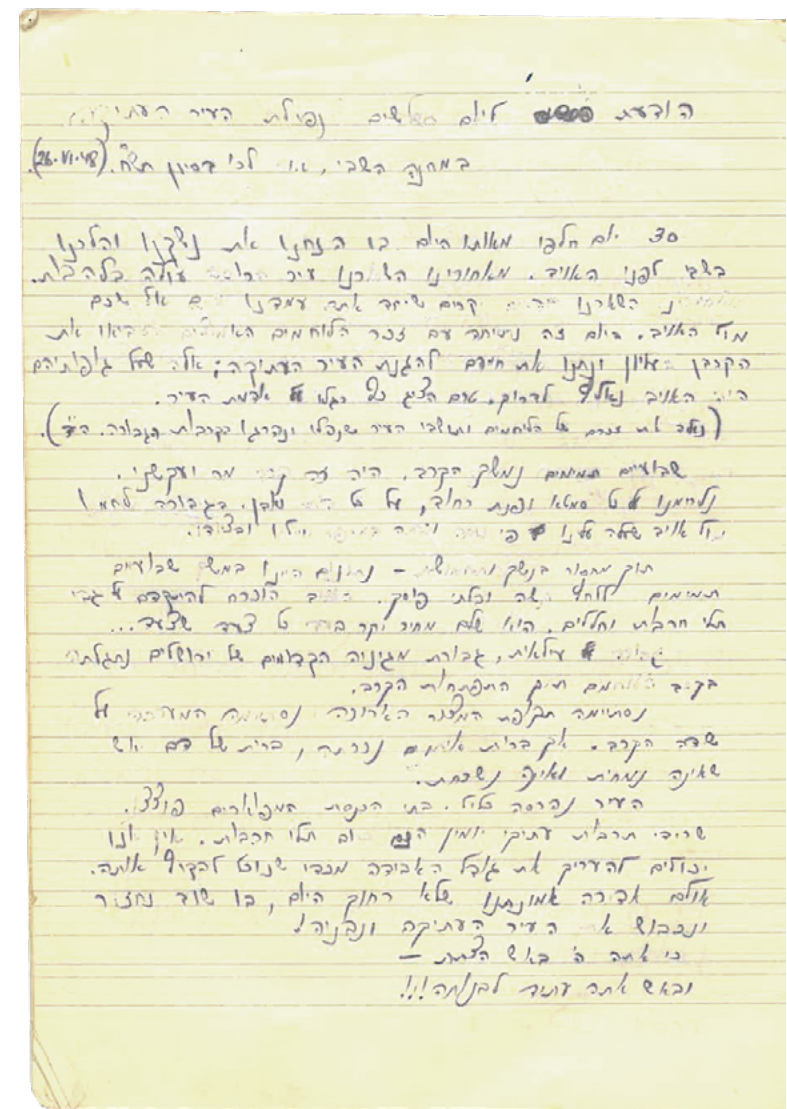 הודעת ליום שלשים נפילת העיר העתיקה
במחנה השבי, אור לכ' בסיון תש"ח. (26.VI.48).
30 יום חלפו מאותו היום בו הנחנו את נשקנו והלכנו
בשבי לפני האויב. מאחורינו השארנו עיר עולה בלהבות.
השארנו יקרים שיחד אתם עמדנו שכם אל שכם
מול האויב. היום זה נתיחד עם זכר הלוחמים הביאו את
הקרבן העליון ונתנו את חייהם להגנת העיר העתיקה; אלה שעל גופותיהם
היה האויב נאלץ לדרוך, טרם הציג כף רגלו על אדמת העיר.
(נעלה את זכרם של הלוחמים ותושבי העיר שנפלו ונהרגו בקרבות הגבורה. הי"ד).
שבועיים תמימים נמשך הקרב. היה זה קרב מר ועקשני.
נלחמנו על כל סמטא ופנת רחוב, על כל אבן. בגבורה לחמנו
מול אויב שעלה עלינו פי וציודו.
תוך מחסור בנשק ותחמושת – נתונים היינו במשך שבועיים
תמימים ללחץ קשה ובלתי פוסק. האויב הוכרח להתקדם על גבי
תלי חרבות וחללים. הוא שלם מחיר יקר בעד כל צעד שצעד...
גבורה עילאית, גבורת מגיניה הקדומים של ירושלים נתגלתה
בקרב הלוחמים תוך התפתחות הקרב.
נסתיימה תקופת המצור הארוכה נסתיימה המערכה על
שדה הקרב. אך ברית איתנים נכרתה, ברית של דם ואש
שאינה נמחית ואינה נשכחת.
העיר נהרסה כליל. בתי הכנסת המפוארים פוצצו.
שרידי תרבות עתיקי יומין הנם תלי חרבות. אין אנו
יכולים להעריך את גודל האבידה מכדי שנוכל להקיף אותה.
אולם אדירה אמונתנו שלא רחוק היום, בו שוב נחזור
ונכבוש את העיר העתיקה ונבניה!
כי אתה ה' באש הצתת –
ובאש אתה עתיד לבנותה!!!